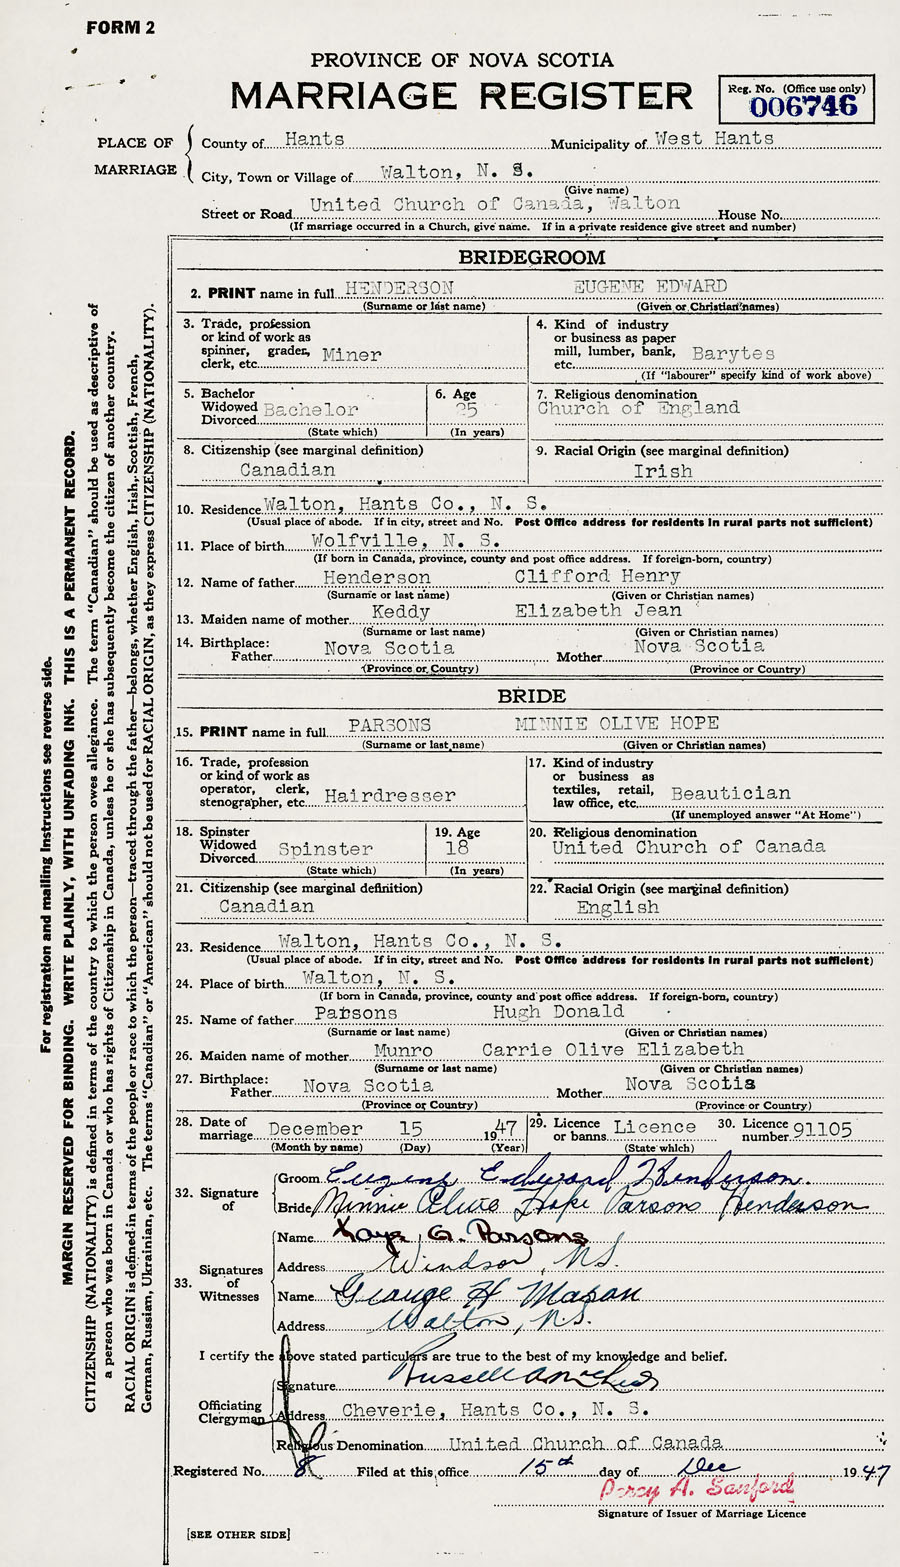 FORM 2
PROVINCE OF NOVA SCOTIA
MARRIAGE REGISTER
Reg. No. (Office use only)
006746
PLACE OF MARRIAGE
County of Hants Municipality of West Hants
City, Town or Village of Walton, N. S.
(Give name)
Street or Road United Church of Canada, Walton House No.
(If marriage occurred in a Church, give name. If in a private residence give street and number)
BRIDEGROOM
2. PRINT name in full HENDERSON EUGENE EDWARD
(Surname or last name) (Given or Christian names)
3. Trade, profession
or kind of work as
spinner, grader,
clerk, etc. Miner
4. Kind of industry
or business as paper
mill, lumber, bank,
etc. Barytes
(If "labourer" specify kind of work above)
5. Bachelor
Widowed
Divorced Bachelor
(State which)
6. Age
25
(In years)
7. Religious denomination
Church of England
8. Citizenship (see marginal definition)
Canadian
9. Racial Origin (see marginal definition)
Irish
10. Residence Walton, Hants Co., N. S.
(Usual place of abode. If in city, street and No. Post Office address for residents in rural parts not sufficient)
11. Place of birth Wolfville, N. S.
(If born in Canada, province, county and post office address. If foreign-born, country)
12. Name of father Henderson Clifford Henry
(Surname or last name) (Given or Christian names)
13. Maiden name of mother Keddy Elizabeth Jean
(Surname or last name) (Given or Christian names)
14. Birthplace:
Father Nova Scotia Mother Nova Scotia
(Province or Country) (Province or Country)
BRIDE
15. PRINT name in full PARSONS MINNIE OLIVE HOPE
(Surname or last name) (Given or Christian names)
16. Trade, profession
or kind of work as
operator, clerk,
stenographer, etc. Hairdresser
17. Kind of industry
or business as
textiles, retail,
law office, etc. Beautician
(If unemployed answer "At Home")
18. Spinster
Widowed
Divorced Spinster
(State which)
19. Age
18
(In years)
20. Religious denomination
United Church of Canada
21. Citizenship (see marginal definition)
Canadian
22. Racial Origin (see marginal definition)
English
23. Residence Walton, Hants Co., N. S.
(Usual place of abode. If in city, street and No. Post Office address for residents in rural parts not sufficient)
24. Place of birth Walton, N. S.
(If born in Canada, province, county and post office address. If foreign-born, country)
25. Name of father Parsons Hugh Donald
(Surname or last name) (Given or Christian names)
26. Maiden name of mother Munro Carrie Olive Elizabeth
(Surname or last name) (Given or Christian names)
27. Birthplace:
Father Nova Scotia Mother Nova Scotia
(Province or Country) (Province or Country)
28. Date of
marriage December 15 1947
(Month by name) (Day) (Year)
29. Licence
or banns Licence
(State which)
30. Licence
number 91105
32. Signature
of
Groom Eugene Edward Henderson.
Bride Minnie Olive Hope Parsons Henderson
33. Signatures
of
Witnesses
Name Kaye G. Parsons
Address Windsor, N.S.
Name George H Mason
Address Walton, N.S.
I certify the above stated particulars are true to the best of my knowledge and belief.
Officiating
Clergyman
Signature Russell
Address Cheverie, Hants Co., N. S.
Religious Denomination United Church of Canada
Registered No. 8 Filed at this office 15th day of Dec 1947
Percy A. Sanford
Signature of Issuer of Marriage Licence
[SEE OTHER SIDE]
For registration and mailing instructions see reverse side.
MARGIN RESERVED FOR BINDING. WRITE PLAINLY, WITH UNFADING INK. THIS IS A PERMANENT RECORD.
CITIZENSHIP (NATIONALITY) is defined in terms of the country to which the person owes allegiance. The term "Canadian" should be used as descriptive of
a person who was born in Canada or who has rights of Citizenship in Canada, unless he or she has subsequently become the citizen of another country.
RACIAL ORIGIN is defined in terms of the people or race to which the person—traced through the father—belongs, whether English, Irish, Scottish, French,
German, Russian, Ukrainian, etc. The terms "Canadian" or "American" should not be used for RACIAL ORIGIN, as they express CITIZENSHIP (NATIONALITY).